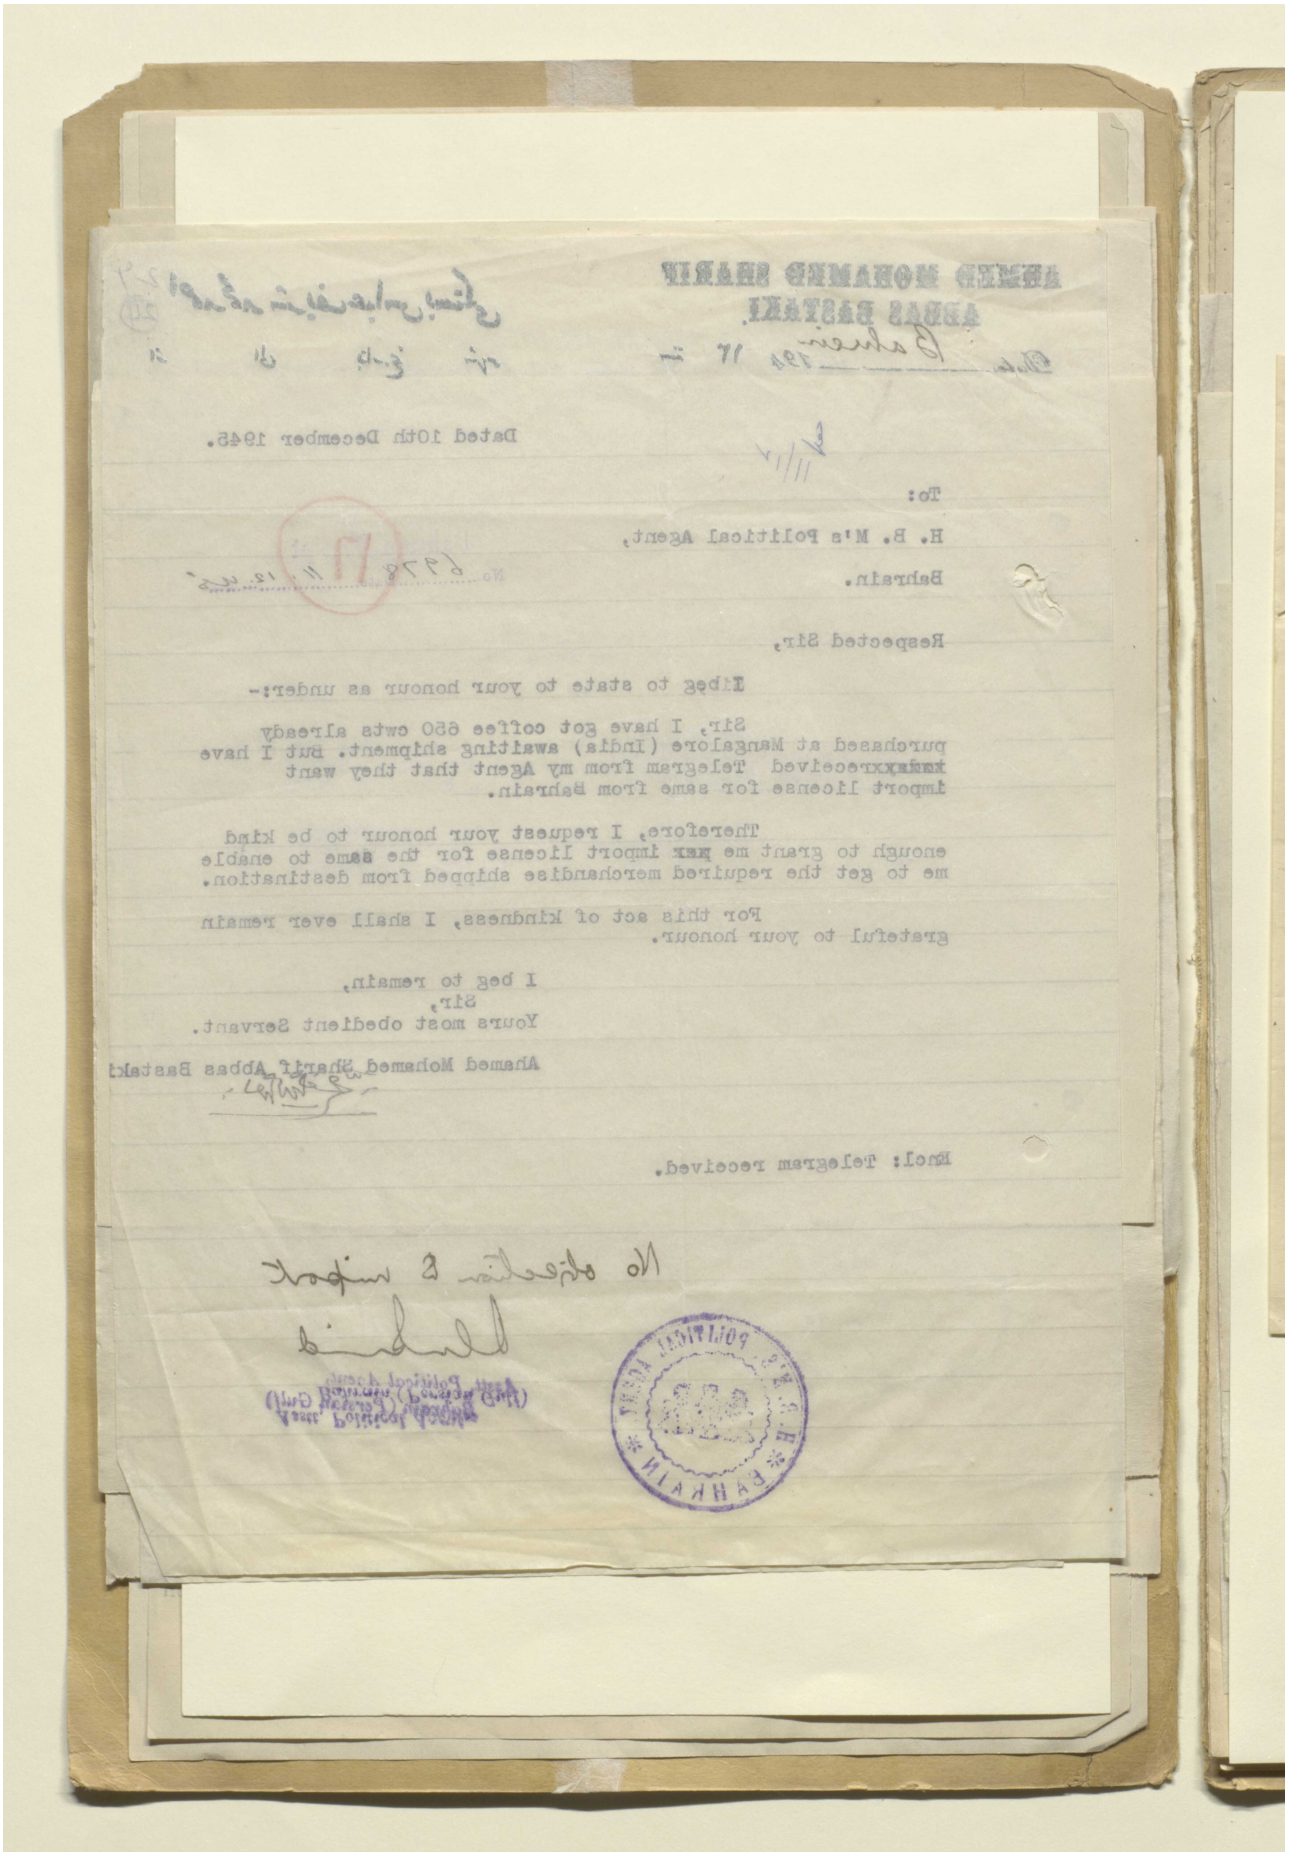 AHMED MOHAMED SHARIF
ABBAS BASTAKI.
احمد محمد شريف عباس بستكي
Bahrein
Date 194
Dated 10th December 1945.
To:
H. B. M's Political Agent,
Bahrain.
17
No 6978 11.12.45
Respected Sir,
I beg to state to your honour as under:-
Sir, I have got coffee 650 cwts already
purchased at Mangalore (India) awaiting shipment. But I have
received Telegram from my Agent that they want
import license for same from Bahrain.
Therefore, I request your honour to be kind
enough to grant me import license for the same to enable
me to get the required merchandise shipped from destination.
For this act of kindness, I shall ever remain
grateful to your honour.
I beg to remain,
Sir,
Yours most obedient Servant.
Ahamed Mohamed Sharif Abbas Bastaki
Encl: Telegram received.
No objection to import
Asst. Political Agent
Bahrain (Persian Gulf)
H. B. M'S. POLITICAL AGENT
* BAHRAIN *